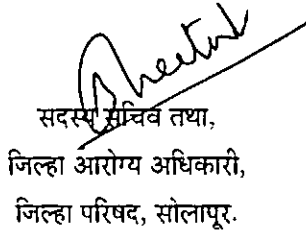 सदस्य सचिव तथा,
जिल्हा आरोग्य अधिकारी,
जिल्हा परिषद, सोलापूर.